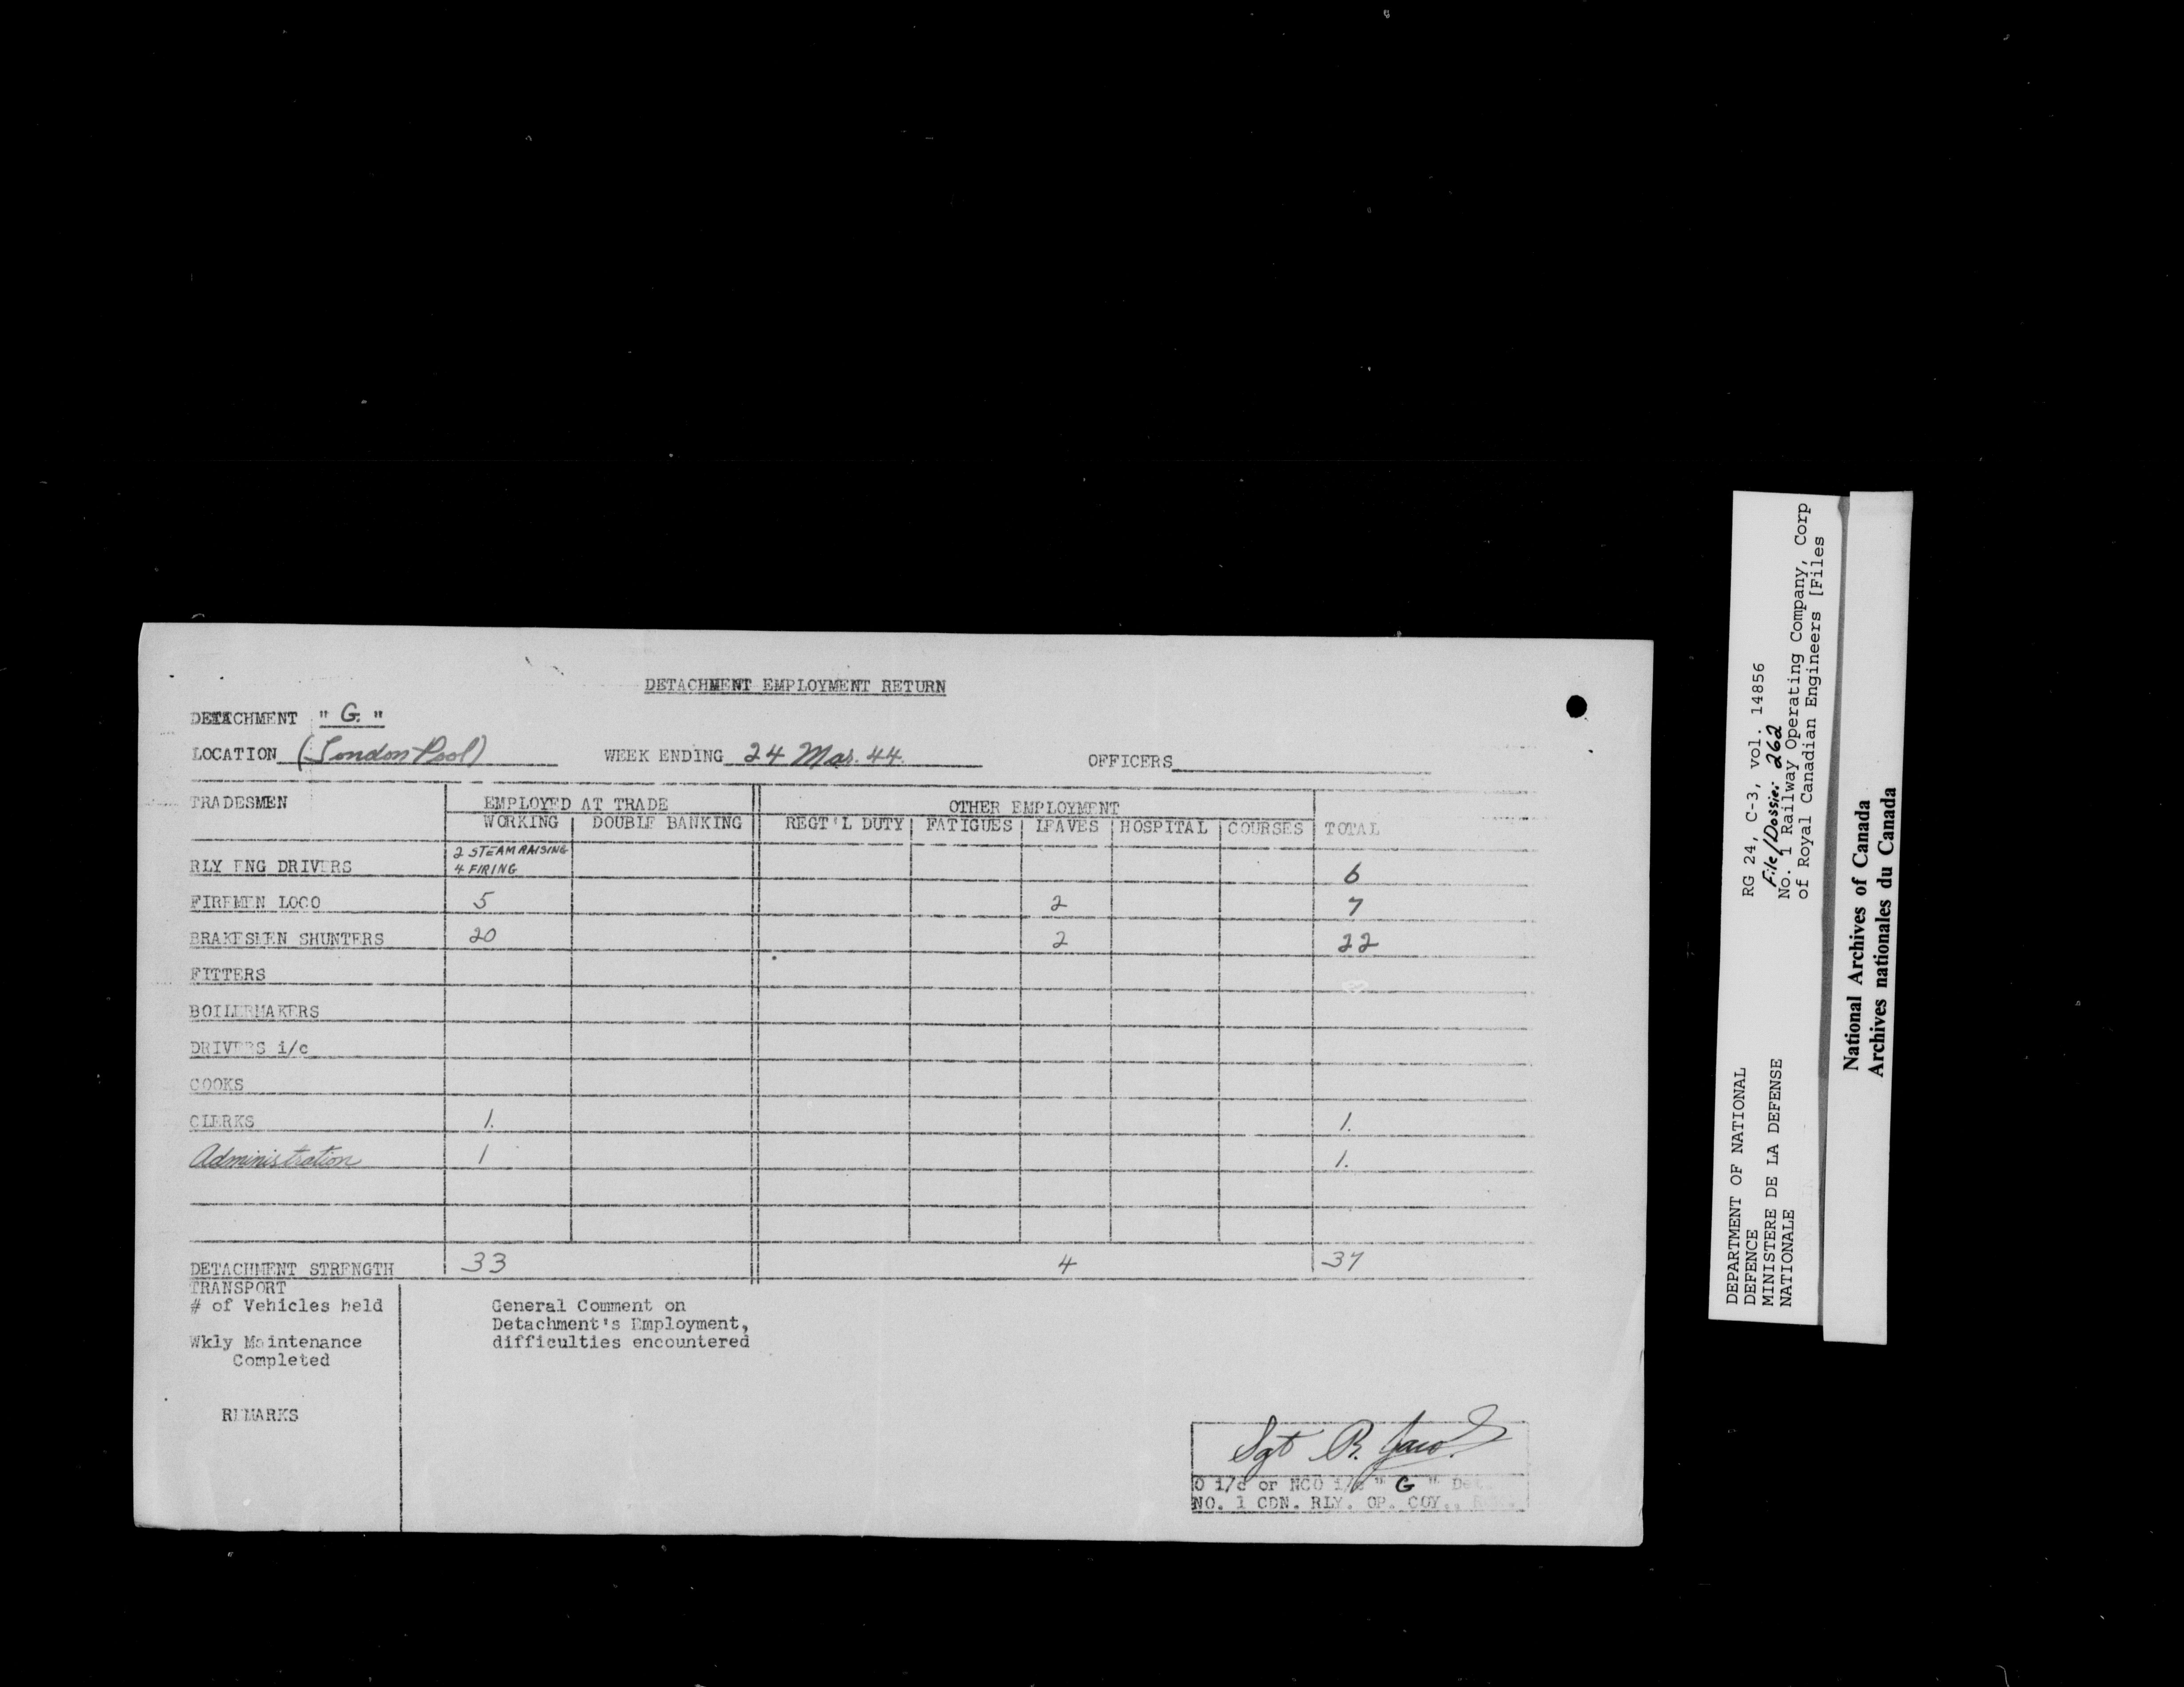 DETACHMENT EMPLOYMENT RETURN
DETACHMENT " G. "
LOCATION (London Pool) WEEK ENDING 24 Mar. 44. OFFICERS
TRADESMEN EMPLOYED AT TRADE OTHER EMPLOYMENT
WORKING DOUBLE BANKING REGT'L DUTY FATIGUES LEAVES HOSPITAL COURSES TOTAL
2 STEAM RAISING
RLY ENG DRIVERS 4 FIRING 6
FIREMEN LOCO 5 2 7
BRAKESMEN SHUNTERS 20 2 22
FITTERS
BOILERMAKERS
DRIVERS i/c
COOKS
CLERKS 1. 1.
Administration 1 1.
DETACHMENT STRENGTH 33 4 37
TRANSPORT
# of Vehicles held General Comment on
Detachment's Employment,
Wkly Maintenance difficulties encountered
Completed
REMARKS
Sgt R.
O i/c or NCO i/c " G " Det.
NO. 1 CDN. RLY. OP. COY.,
DEPARTMENT OF NATIONAL
DEFENCE
MINISTERE DE LA DEFENSE
NATIONALE
RG 24, C-3, vol. 14856
File/Dossier 262
No. 1 Railway Operating Company, Corp
of Royal Canadian Engineers [Files
National Archives of Canada
Archives nationales du Canada